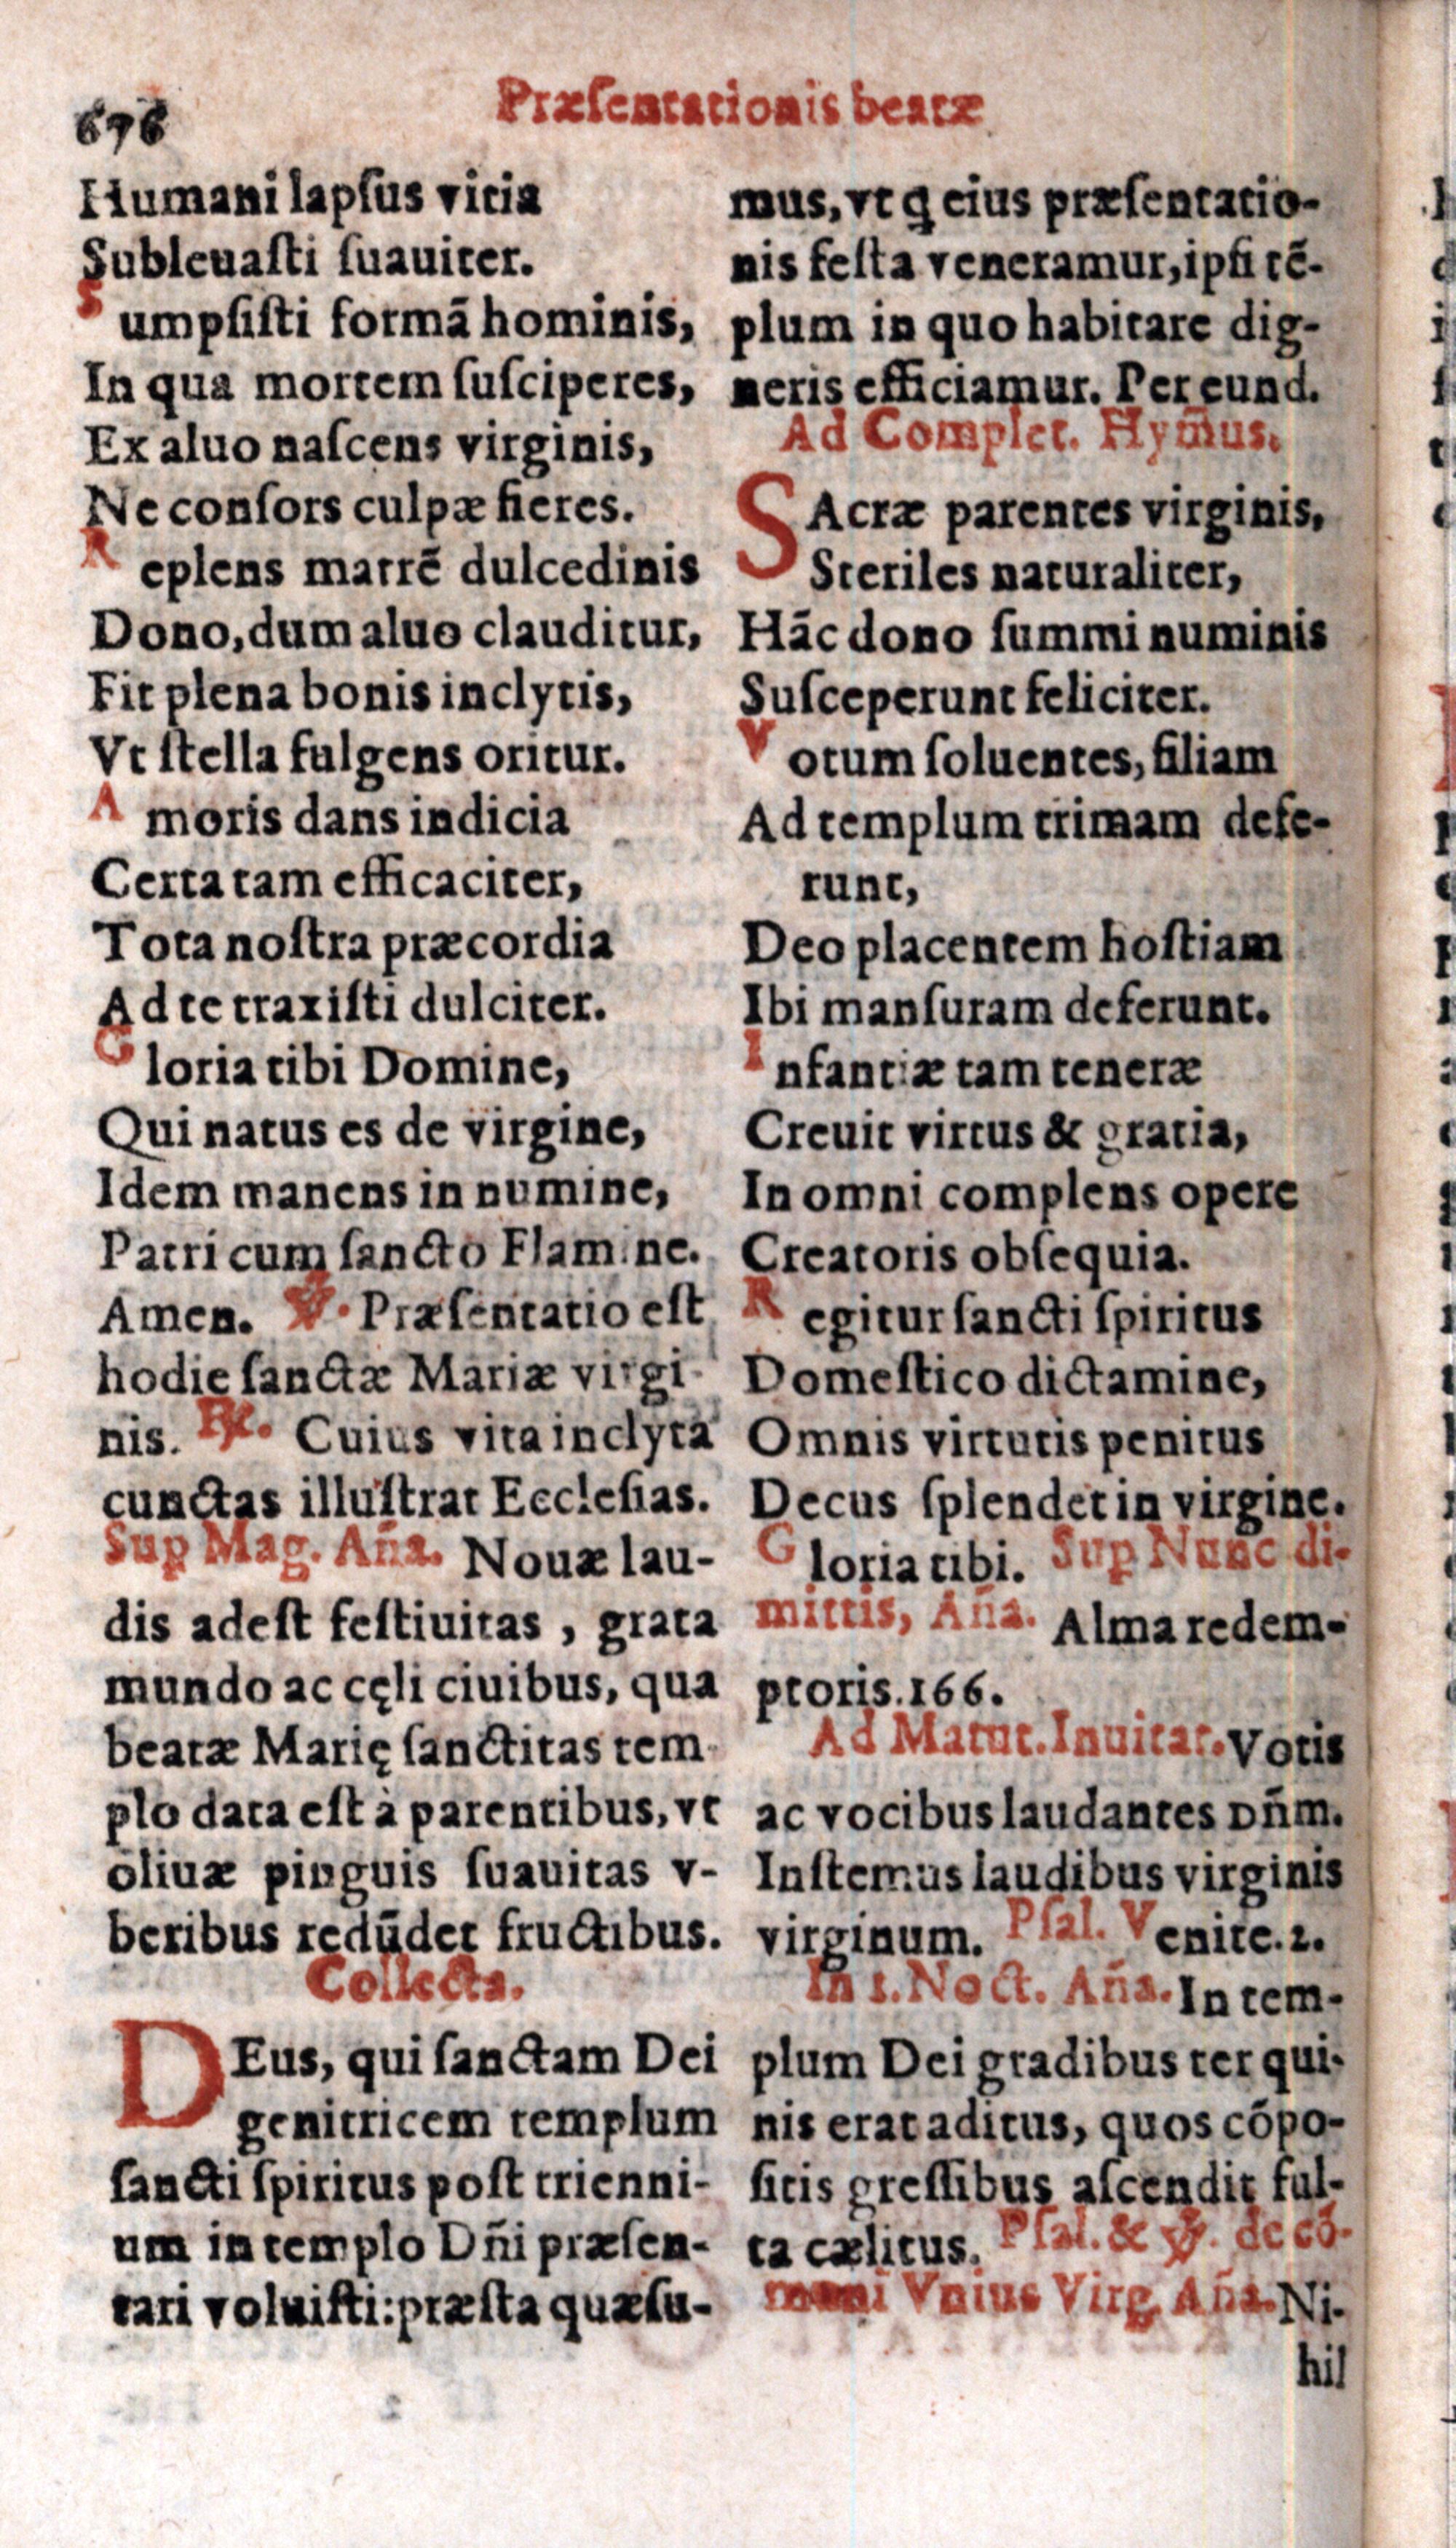 676
Præſentationis beatæ
Humani lapſus vitia
Subleuaſti ſuauiter.
Sumpſiſti formã hominis,
In qua mortem ſuſciperes,
Ex aluo naſcens virginis,
Ne conſors culpæ fieres.
Replens matrẽ dulcedinis
Dono, dum aluo clauditur,
Fit plena bonis inclytis,
Vt ſtella fulgens oritur.
Amoris dans indicia
Certa tam efficaciter,
Tota noſtra præcordia
Ad te traxiſti dulciter.
Gloria tibi Domine,
Qui natus es de virgine,
Idem manens in numine,
Patri cum ſancto Flamine.
Amen. ℣. Præſentatio eſt
hodie ſanctæ Mariæ virgi-
nis. ℟. Cuius vita inclyta
cunctas illuſtrat Eccleſias.
Suꝑ Mag. Añа. Nouæ lau-
dis adeſt feſtiuitas, grata
mundo ac cęli ciuibus, qua
beatæ Marię ſanctitas tem-
plo data eſt à parentibus, vt
oliuæ pinguis ſuauitas v-
beribus redũdet fructibus.
Collecta.
DEus, qui ſanctam Dei
genitricem templum
ſancti ſpiritus poſt trienni-
um in templo Dñi præſen-
tari voluiſti: præſta quæſu-
mus, vt ꝗ eius præſentatio-
nis feſta veneramur, ipſi tẽ-
plum in quo habitare dig-
neris efficiamur. Per eund.
Ad Complet. Hym̃us.
SAcræ parentes virginis,
Steriles naturaliter,
Hãc dono ſummi numinis
Suſceperunt feliciter.
Votum ſoluentes, filiam
Ad templum trimam defe-
runt,
Deo placentem hoſtiam
Ibi manſuram deferunt.
Infantiæ tam teneræ
Creuit virtus & gratia,
In omni complens opere
Creatoris obſequia.
Regitur ſancti ſpiritus
Domeſtico dictamine,
Omnis virtutis penitus
Decus ſplendet in virgine.
Gloria tibi. Suꝑ Nunc di-
mittis, Aña. Alma redem-
ptoris. 166.
Ad Matut. Inuitat. Votis
ac vocibus laudantes Dñm.
Inſtemus laudibus virginis
virginum. Pſal. Venite. 2.
In 1. Noct. Aña. In tem-
plum Dei gradibus ter qui-
nis erat aditus, quos cõpo-
ſitis greſſibus aſcendit ful-
ta cælitus. Pſal. & ℣. de cõ-
muni Vnius Virg. Aña. Ni-
hil